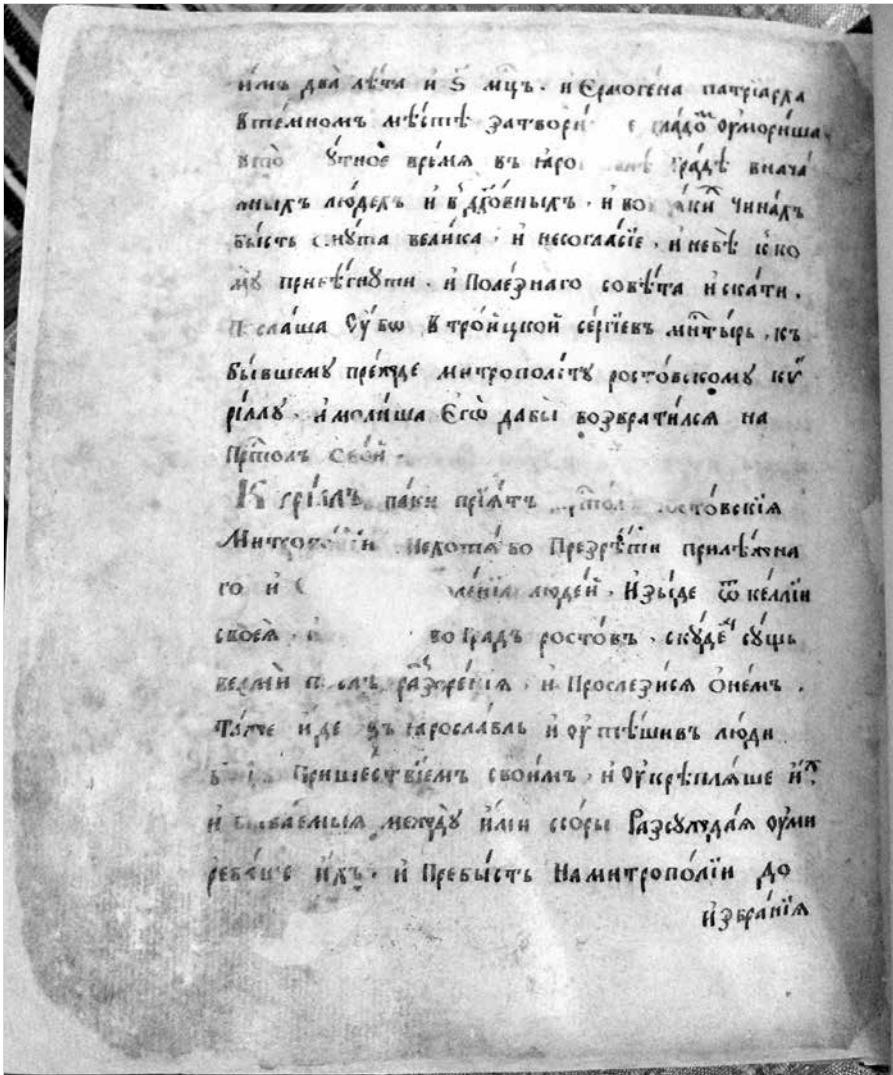 и́мъ два̀ лѣ́та и ѕ҃ мц҃ъ. и Ермоге́на патрїа́рха
в те́мномъ мѣ́стѣ затвори гла́домъ оумори́ша.
у́тное вре́мя въ гра́дѣ внача́
лныхъ лю́дехъ и в дх҃о́вныхъ. и во чина́хъ
бы́сть сму́та вели́ка. и несогла́сїе. и не бѣ̀ к ко
му̀ прибѣ́гнути. и Поле́знаго совѣ́та иска́ти.
Посла́ша Оу́бѡ в трои́цкой се́ргїевъ мн҃ты́рь. къ
бы́вшему пре́жде митрополи́ту росто́вскому кѵ
рі́ллу. и моли́ша Его̀ дабы̀ возврати́лся на
Прⷭ҇то́лъ Сво́й.
Кѵрі́лъ па́ки прїя́тъ прⷭ҇то́лъ росто́вскїя
Митропо́лїи Не хотя́ бо Презрѣ́ти прилѣ́жна
го и моле́нїя люде́й. Изы́де ѿ ке́ллїи
своея̀. во Гра́дъ росто́въ. ску́денъ су́щь
велмѝ разоре́нїя. и Прослези́ся о не́мъ.
Та́же и́де въ яросла́вль и оутѣ́шивъ лю́ди
Прише́ствїемъ свои́мъ. и Оукрѣпля́ше и́хъ.
и быва́емыя между̀ и́ми ссо́ры Разсужда́я оуми
рева́ше и́хъ. и Пребы́сть На митропо́лїи до
избра́нїя